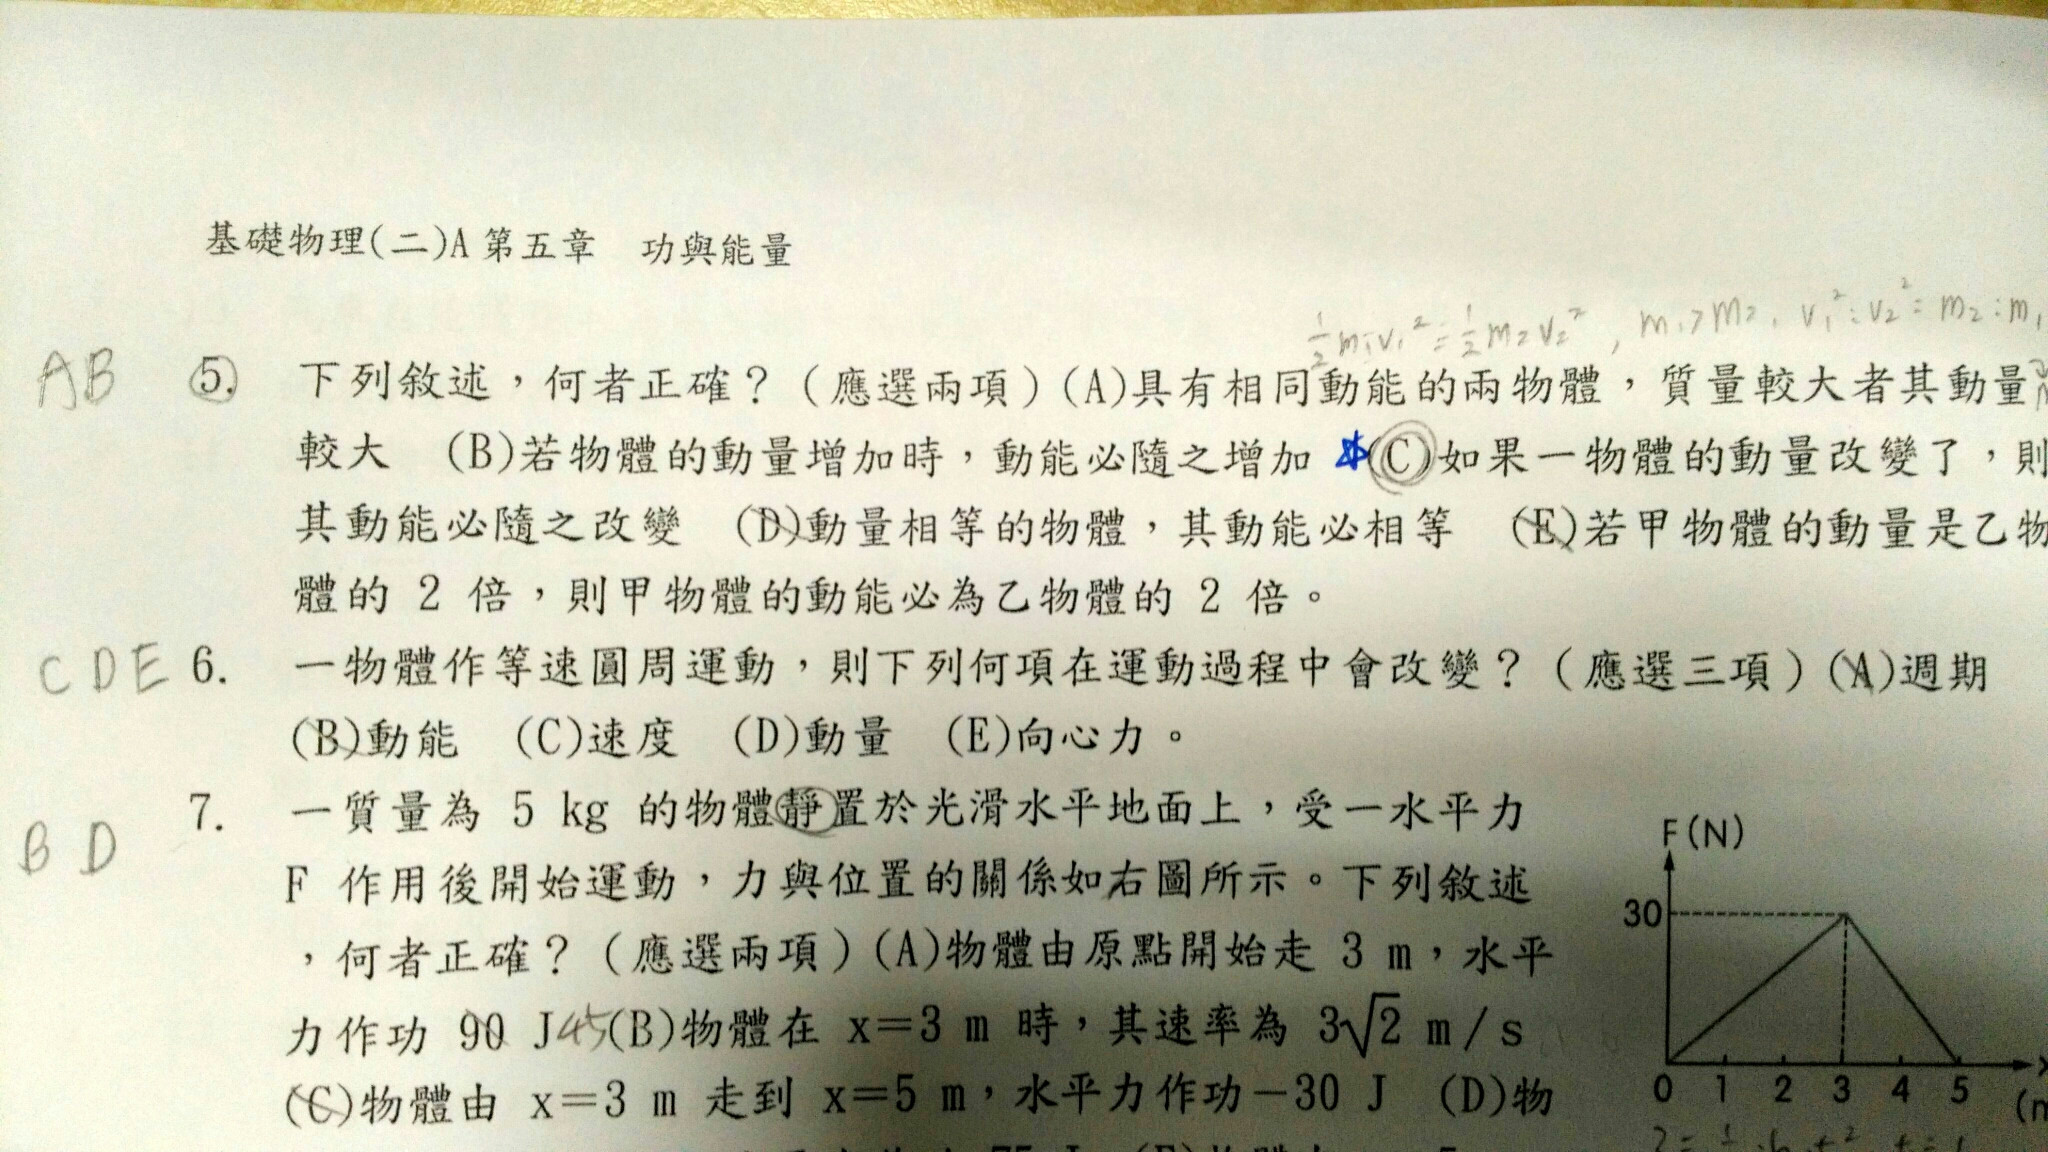 基礎物理(二)A 第五章　功與能量
½m₁v₁²=½m₂v₂², m₁>m₂, v₁²:v₂²=m₂:m₁
AB 5. 下列敘述，何者正確？(應選兩項)(A)具有相同動能的兩物體，質量較大者其動量
較大　(B)若物體的動量增加時，動能必隨之增加　(C)如果一物體的動量改變了，則
其動能必隨之改變　(D)動量相等的物體，其動能必相等　(E)若甲物體的動量是乙物
體的 2 倍，則甲物體的動能必為乙物體的 2 倍。
CDE 6. 一物體作等速圓周運動，則下列何項在運動過程中會改變？(應選三項)(A)週期
(B)動能　(C)速度　(D)動量　(E)向心力。
BD 7. 一質量為 5 kg 的物體靜置於光滑水平地面上，受一水平力
F 作用後開始運動，力與位置的關係如右圖所示。下列敘述
，何者正確？(應選兩項)(A)物體由原點開始走 3 m，水平
力作功 90 J 45 (B)物體在 x＝3 m 時，其速率為 3√2 m/s
(C)物體由 x＝3 m 走到 x＝5 m，水平力作功－30 J　(D)物
F(N)
30
0 1 2 3 4 5